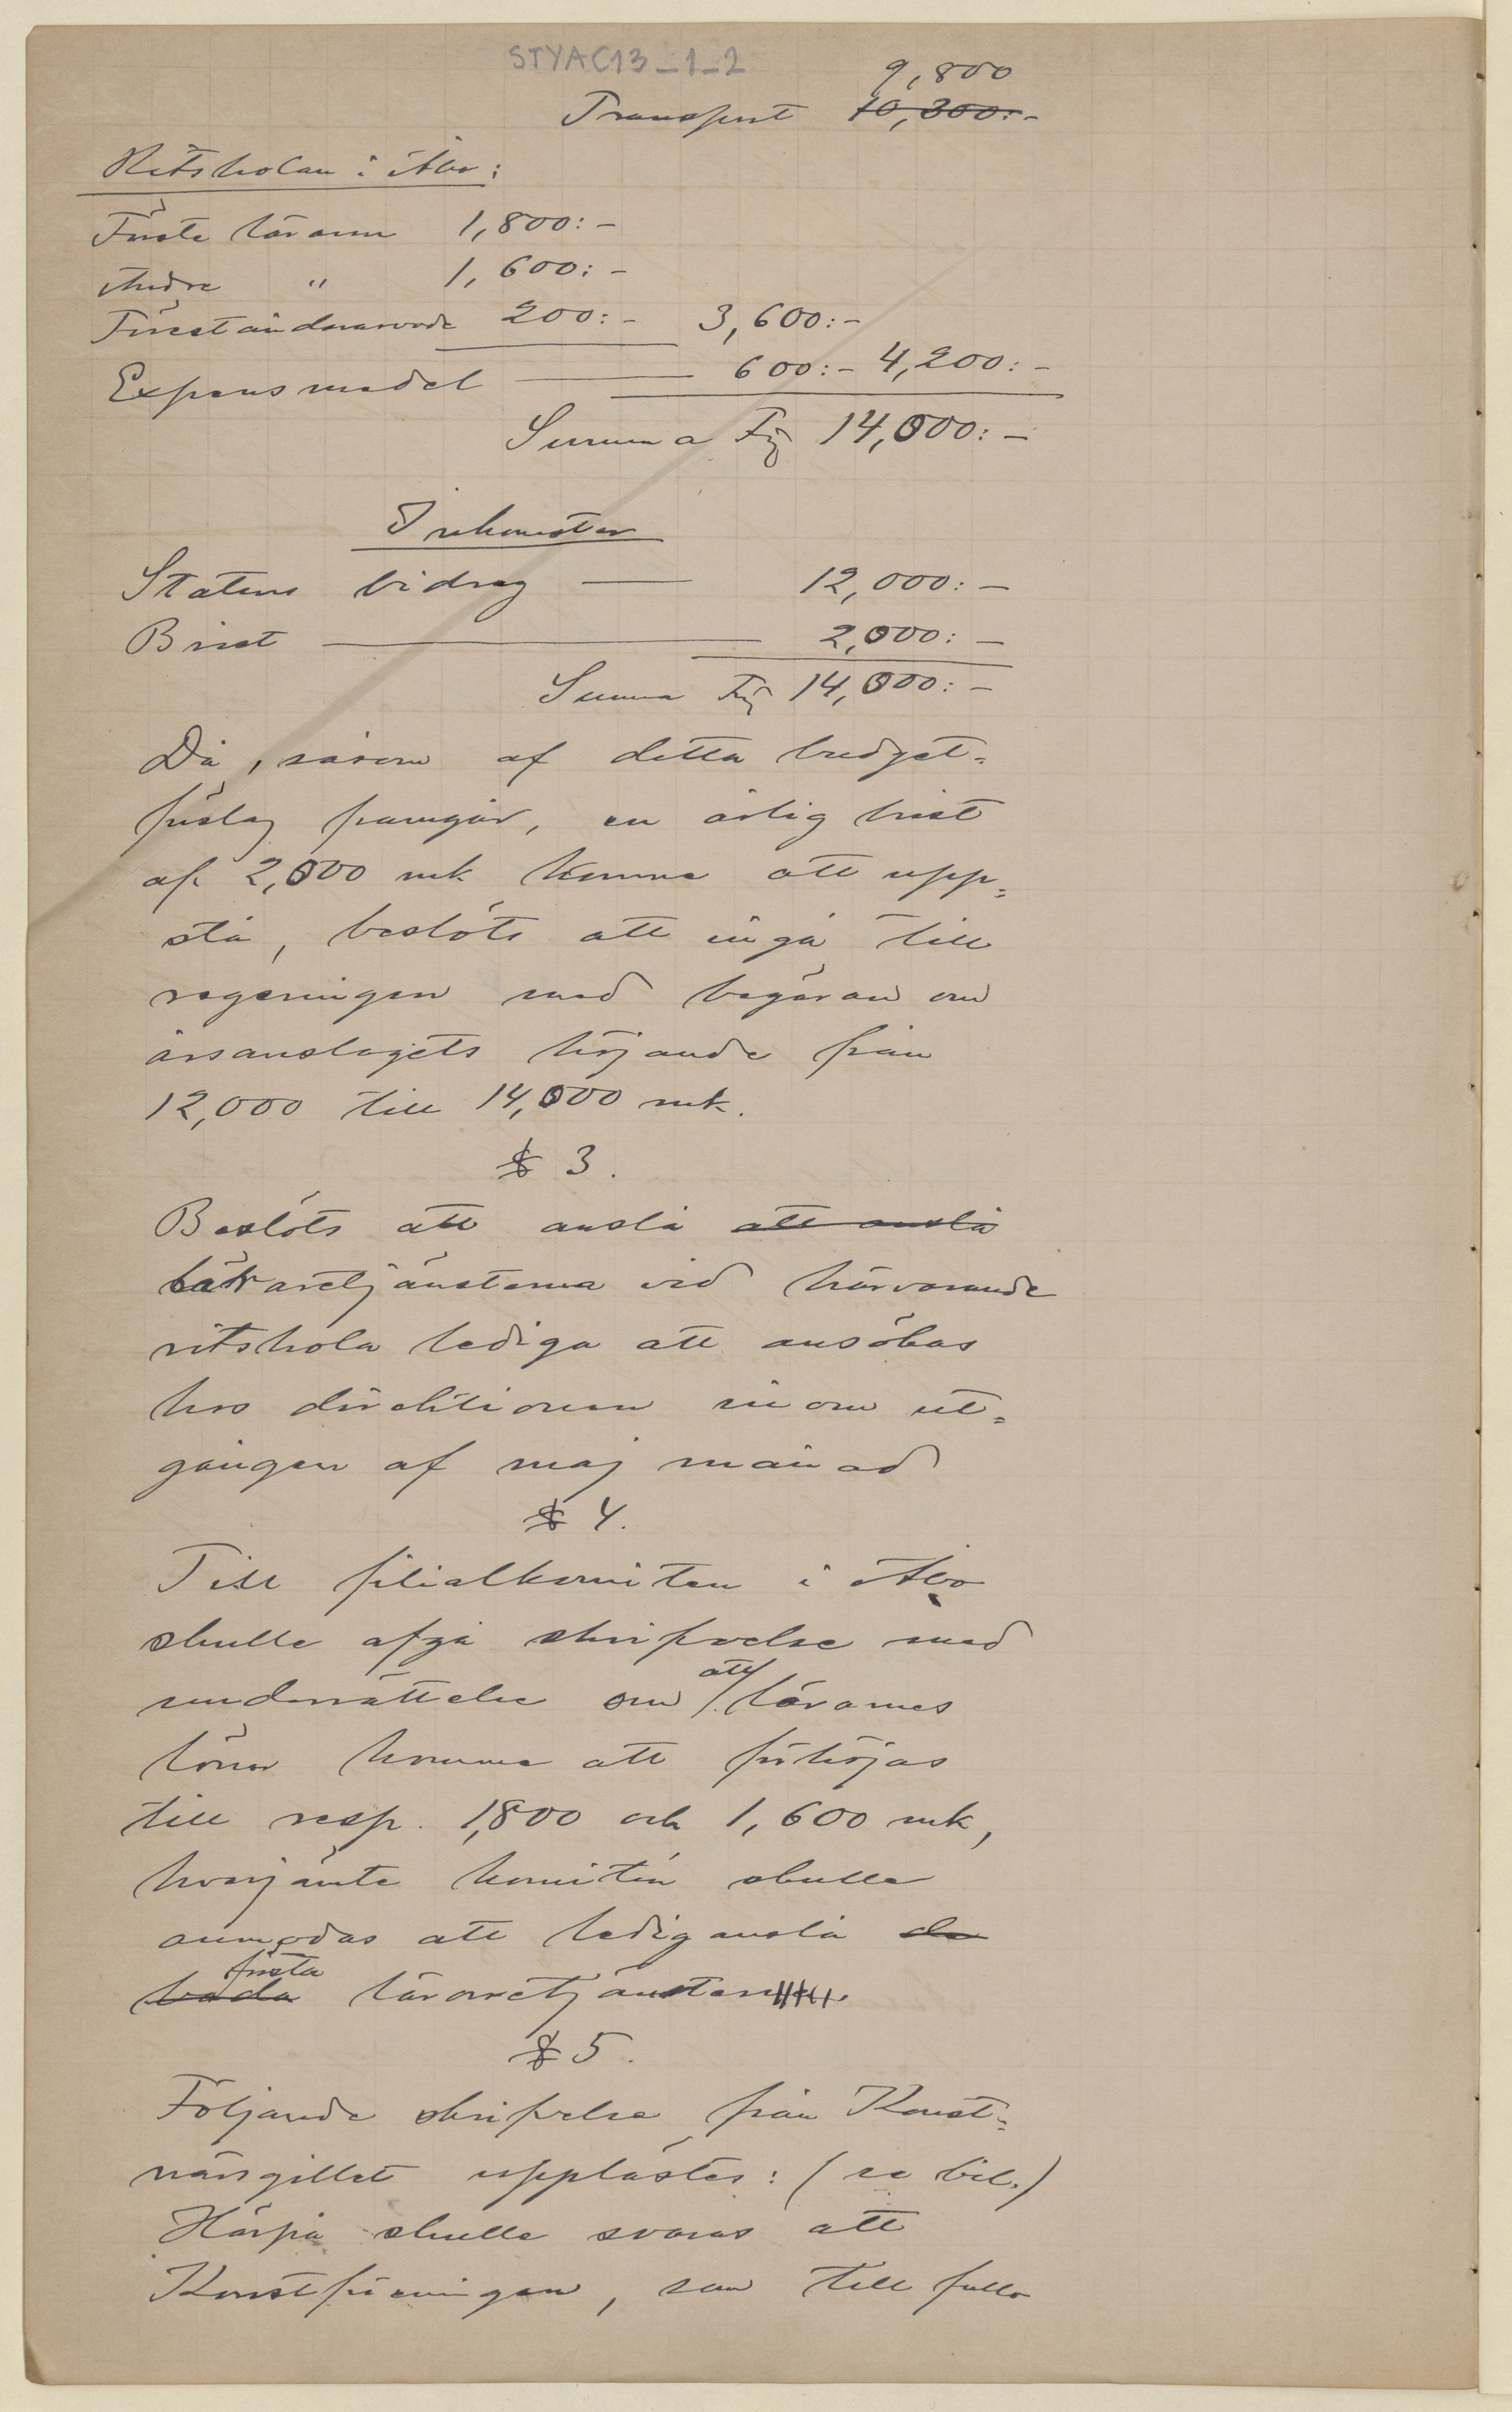 STYAC13_1_2
9,800
Transport 10,300:-
Ritskolan i Åbo:
Förste läraren 1,800:-
Andre " 1,600:-
Föreståndararvode 200:- 3,600:-
Expensmedel 600:- 4,200:-
Summa Fmk 14,000:-
Inkomster
Statens bidrag 12,000:-
Brist 2,000:-
Summa Fmk 14,000:-
Då, såsom af detta budget-
förslag framgår, en årlig brist
af 2,000 mk komme att upp-
stå, beslöts att ingå till
regeringen med begäran om
årsanslagets höjande från
12,000 till 14,000 mk.
§ 3.
Beslöts att anslå att anslå
läraretjänsterna vid härvarande
ritskola lediga att ansökas
hos direktionen inom ut-
gången af maj månad
§ 4.
Till filialkomiten i Åbo
skulle afgå skrifvelse med
underrättelse om att lärarnes
löner komme att förhöjas
till resp. 1,800 och 1,600 mk,
hvarjämte komitén skulle
anmodas att ledig anslå de
båda första läraretjänsten
§ 5.
Följande skrifvelse från Konst-
närsgillet upplästes: (se bil.)
Härpå skulle svaras att
Konstföreningen, som till fullo